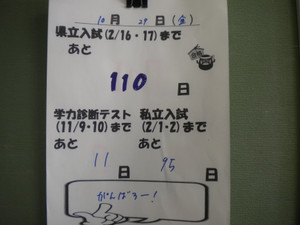 10月29日(金)
県立入試(2/16・17)まで
あと
110日
学力診断テスト 私立入試
(11/9・10)まで (2/1・2)まで
あと あと
11日 95日
がんばろー!